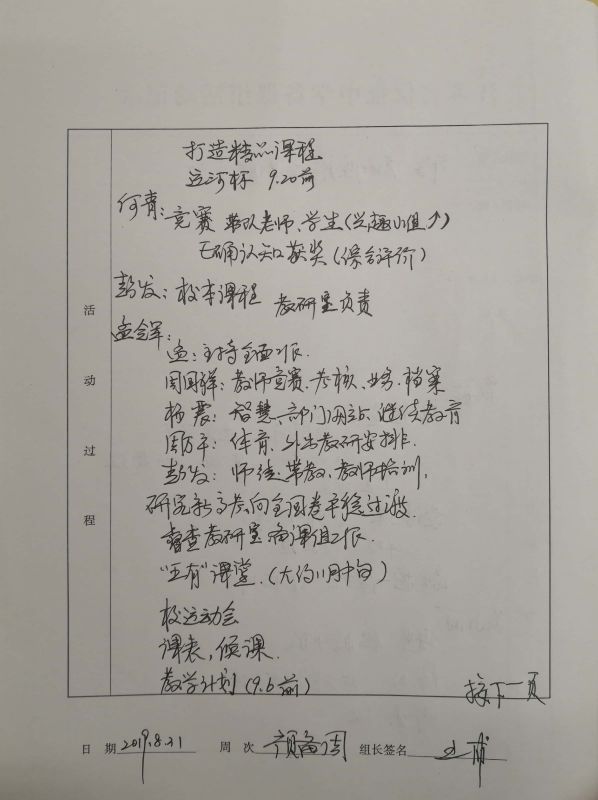 打造精品课程
运河杯 9.20前
何青：竞赛 带队老师、学生(兴趣小组↑)
正确认知获奖(综合评价)
彭发：校本课程 教研室负责
孟会军：
孟：主持全面工作.
周国祥：教师竞赛.考核、业务.档案
杨震：智慧、部门网站、继续教育
周万平：体育.外出教研安排.
彭发：师徒带教、教师培训.
研究新高考向全国卷平稳过渡.
督查教研室备课组工作.
"五有"课堂.(大约11月中旬)
校运动会
课表，侯课.
教学计划(9.6前)
接下一页
活动过程
日 期 2019.8.31 周 次 预备周 组长签名